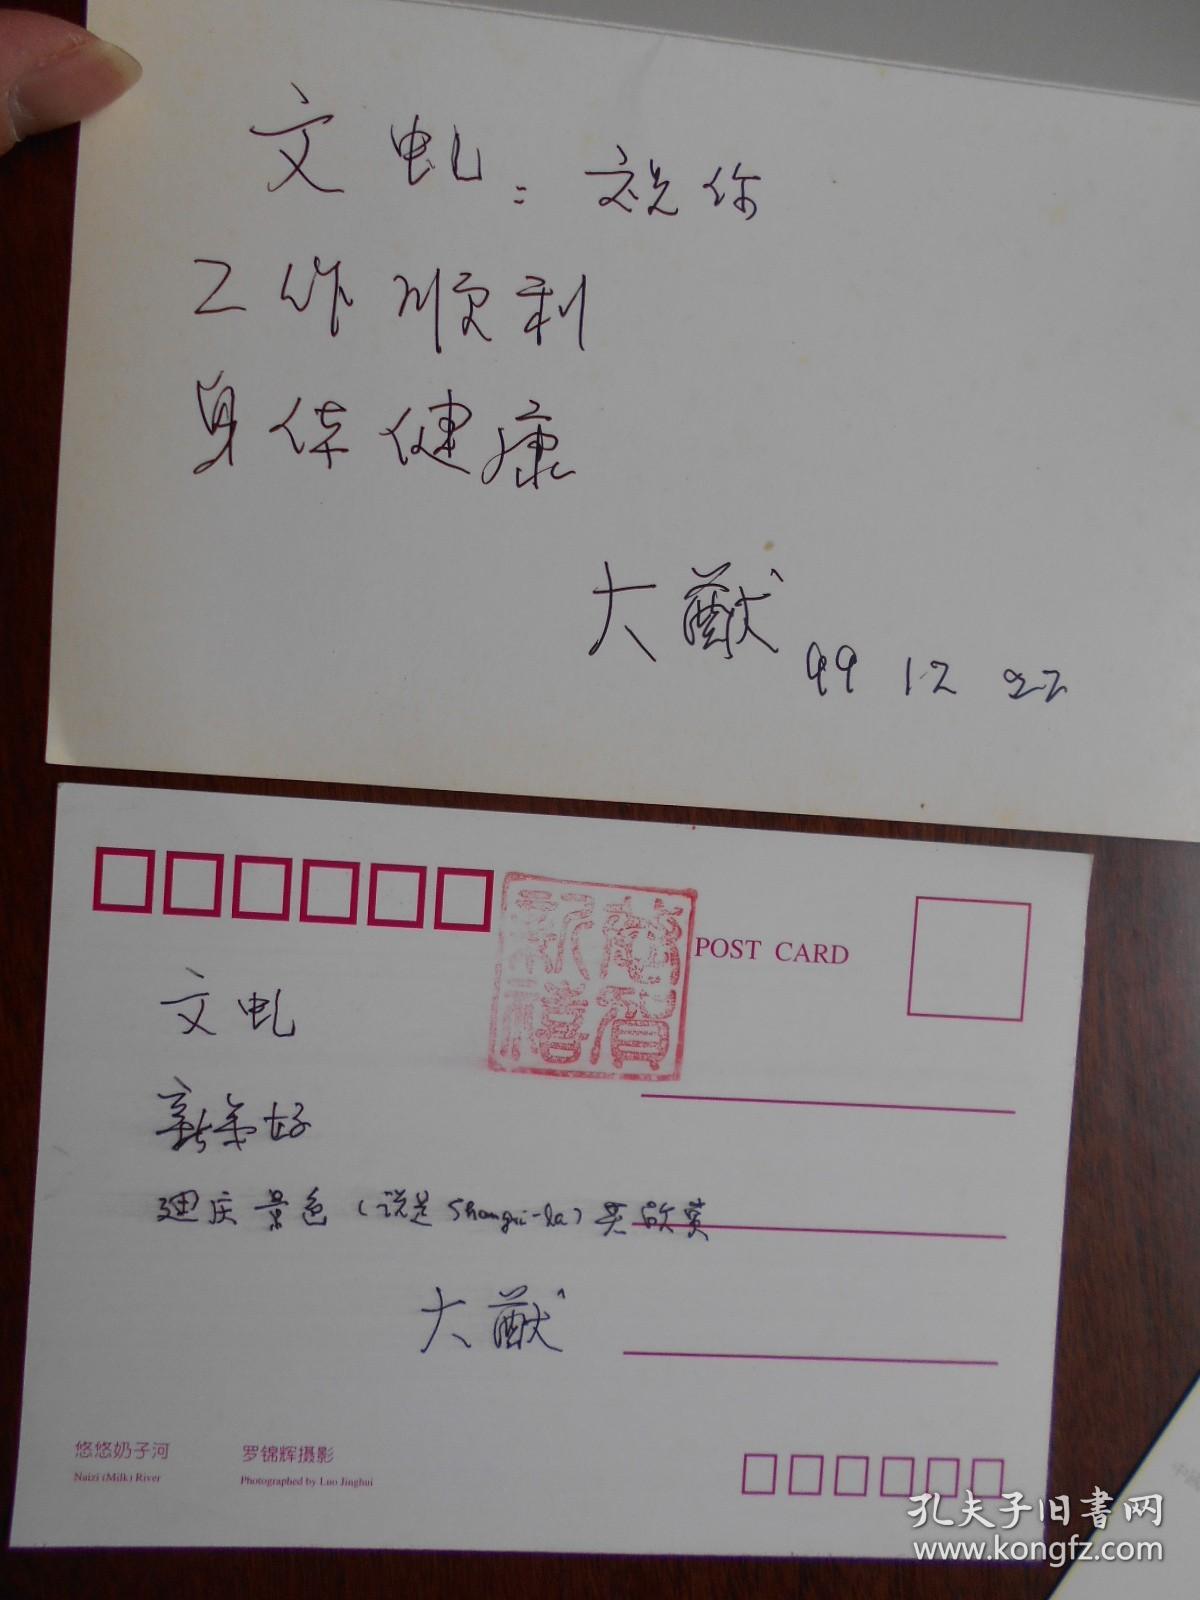 文虬：祝你
工作顺利
身体健康
大猷 99 12 22
恭贺新禧
POST CARD
文虬
新年好
迪庆景色（说是Shangri-la）共欣赏
大猷
悠悠奶子河
Naizi (Milk) River
罗锦辉摄影
Photographed by Luo Jinghui
孔夫子旧书网
www.kongfz.com